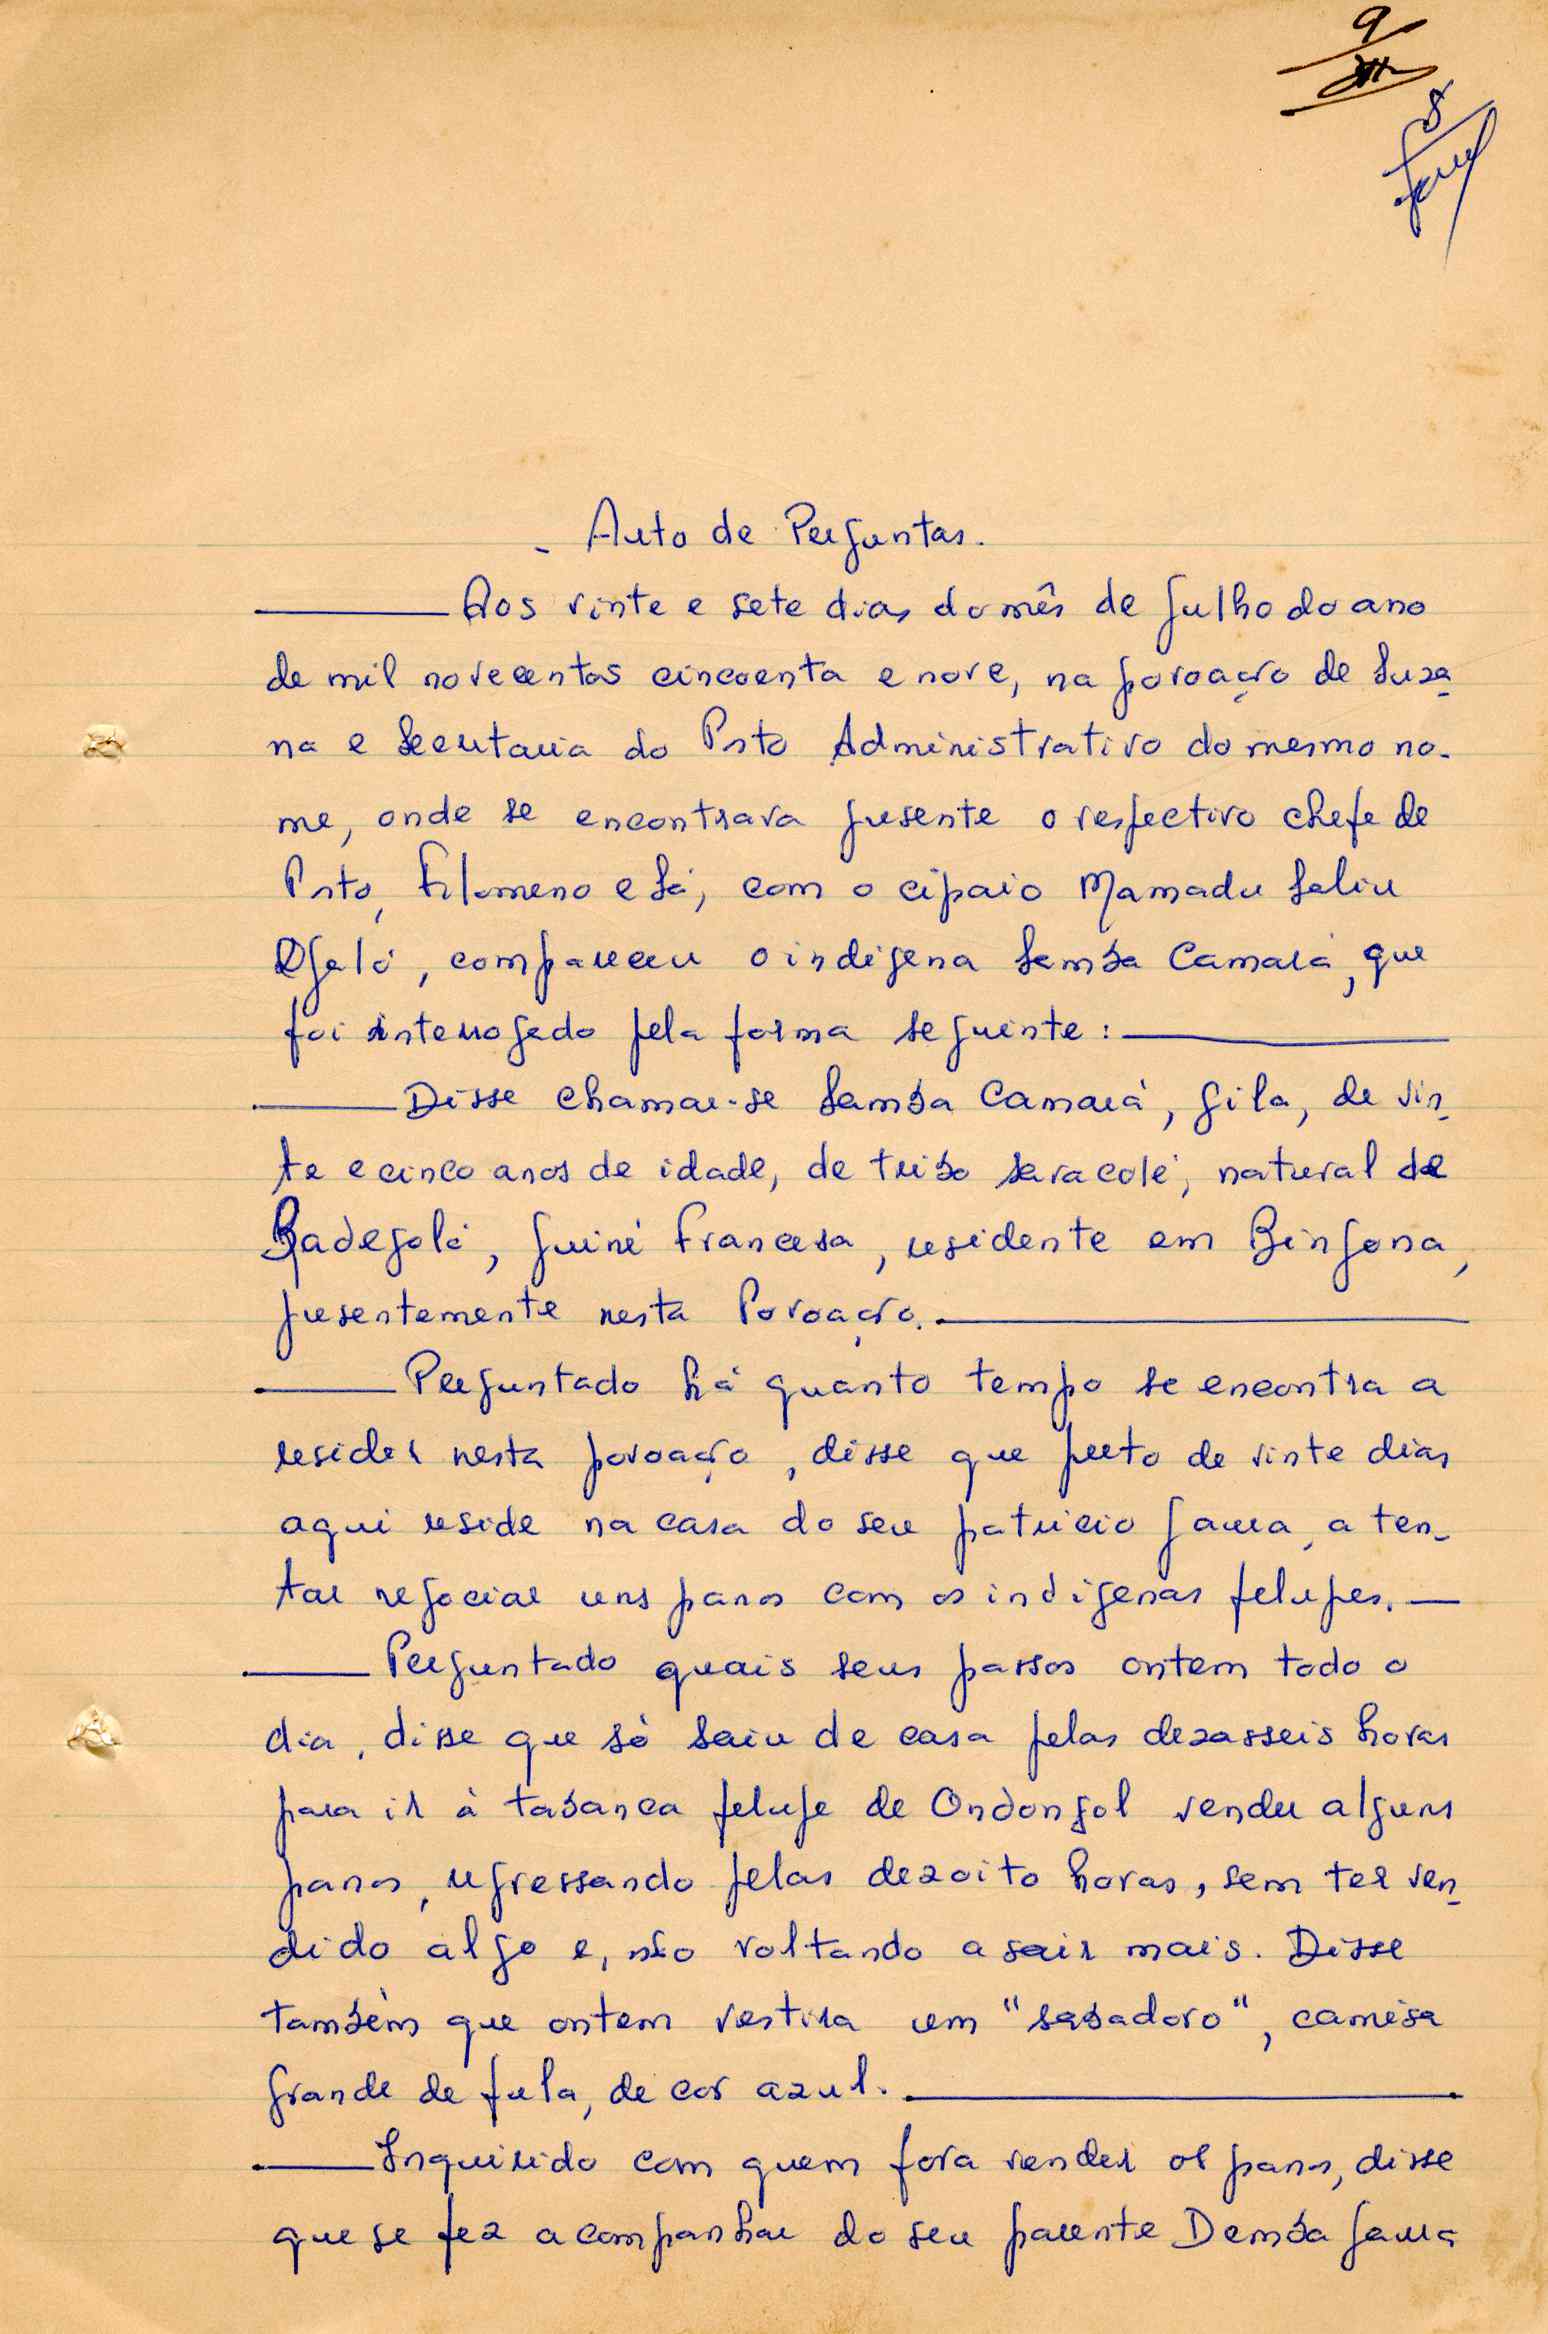 9
8
- Auto de Perguntas.
Aos vinte e sete dias do mês de Julho do ano
de mil novecentos cincoenta e nove, na povoação de Suza-
na e Secretaria do Posto Administrativo do mesmo no-
me, onde se encontrava presente o respectivo chefe de
Posto, Filomeno e Sá, com o cipaio Mamadu Saliu
Djaló, compareceu o indígena Samba Camará, que
foi interrogado pela forma seguinte:
Disse chamar-se Samba Camará, gila, de vin-
te e cinco anos de idade, de tribo saracolé, natural de
Badegolá, Guiné Francesa, residente em Bingona,
presentemente nesta Povoação.
Perguntado há quanto tempo se encontra a
residir nesta povoação, disse que perto de vinte dias
aqui reside na casa do seu patricio Jaura, a ten-
tar negociar uns panos com os indígenas felupes.
Perguntado quais seus passos ontem todo o
dia, disse que só saiu de casa pelas dezasseis horas
para ir à tabanca felupe de Ondongol vender alguns
panos, regressando pelas dezoito horas, sem ter ven-
dido algo e, não voltando a sair mais. Disse
também que ontem vestira um "sabadoro", camisa
grande de fula, de cor azul.
Inquirido com quem fora vender os panos, disse
que se fez acompanhar do seu parente Demba Jaura